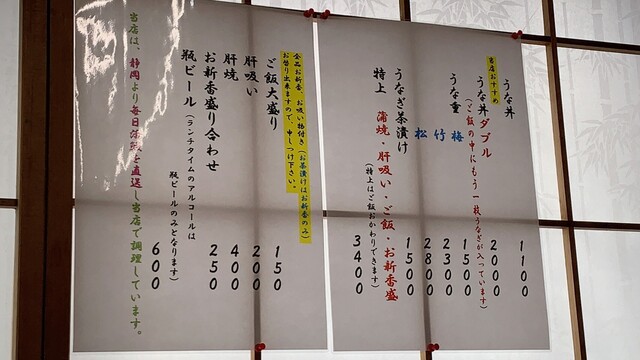 うな丼 1100
当店おすすめ
うな丼ダブル 2000
(ご飯の中にもう一枚うなぎが入っています)
うな重 梅 1500
竹 2300
松 2800
うなぎ茶漬け 1500
特上 蒲焼・肝吸い・ご飯・お新香盛 3400
(特上はご飯おかわりできます)
全品お新香、お吸い物付き(お茶漬けはお新香のみ)
お替り出来ますので、申しつけ下さい。
ご飯大盛り 150
肝吸い 200
肝焼 400
お新香盛り合わせ 250
瓶ビール 600
(ランチタイムのアルコールは
瓶ビールのみとなります)
当店は、静岡より毎日 を直送し当店で調理しています。